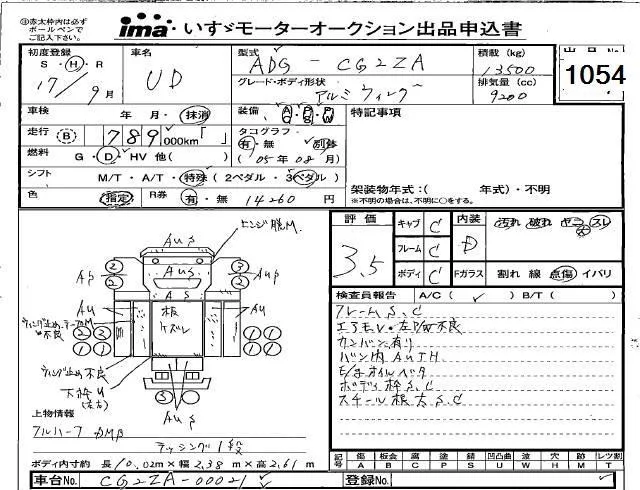 ㊟赤太枠内は必ず
ボールペンで
ご記入下さい。
ima いすゞモーターオークション出品申込書
初度登録 車名 型式 積載 (kg) 出品No
S・H・R UD ADG - CG2ZA 13500 1054
17/9月 グレード・ボディ形状 排気量 (cc)
アルミウィング 9200
車検 年 月・抹消 装備 A P A P S P 特記事項
走行 B 789,000km タコグラフ
有・無 別体
燃料 G・D・HV 他( ) (05年08月)
シフト M/T・A/T・特殊 (2ペダル・3ペダル) 架装物年式:( 年式)・不明
色 指定 R券 有・無 14260 円 ※不明の場合は、不明に○をする。
評価 キャブ C 内装 汚れ 破れ ヤニ スレ
3.5 フレーム C D
ボディ C Fガラス 割れ 線 点傷 イバリ
ヒンジ脱M
Aus
Aus
AS
Aus
Au
Au
板
ケズレ
不良
ウィング止め不良
下枠U
(左右)
Aus
検査員報告 A/C( ✓ ) B/T( )
フレームS、C
エアモレ・左P/W不良
カンバン有り
バン内AUTH
E/gオイルベタ
ボディ枠S、C
スチール根太S、C
上物情報
フルハーフ
ラッシング1段
ボディ内寸約 長10.02m×幅2.38m×高2.61m
記号 傷 板金 腐 塗 錆 凹凸曲 波 穴 跡 レツ割
A B C P S U W H M T
車台No. CG2ZA-00021 登録No.